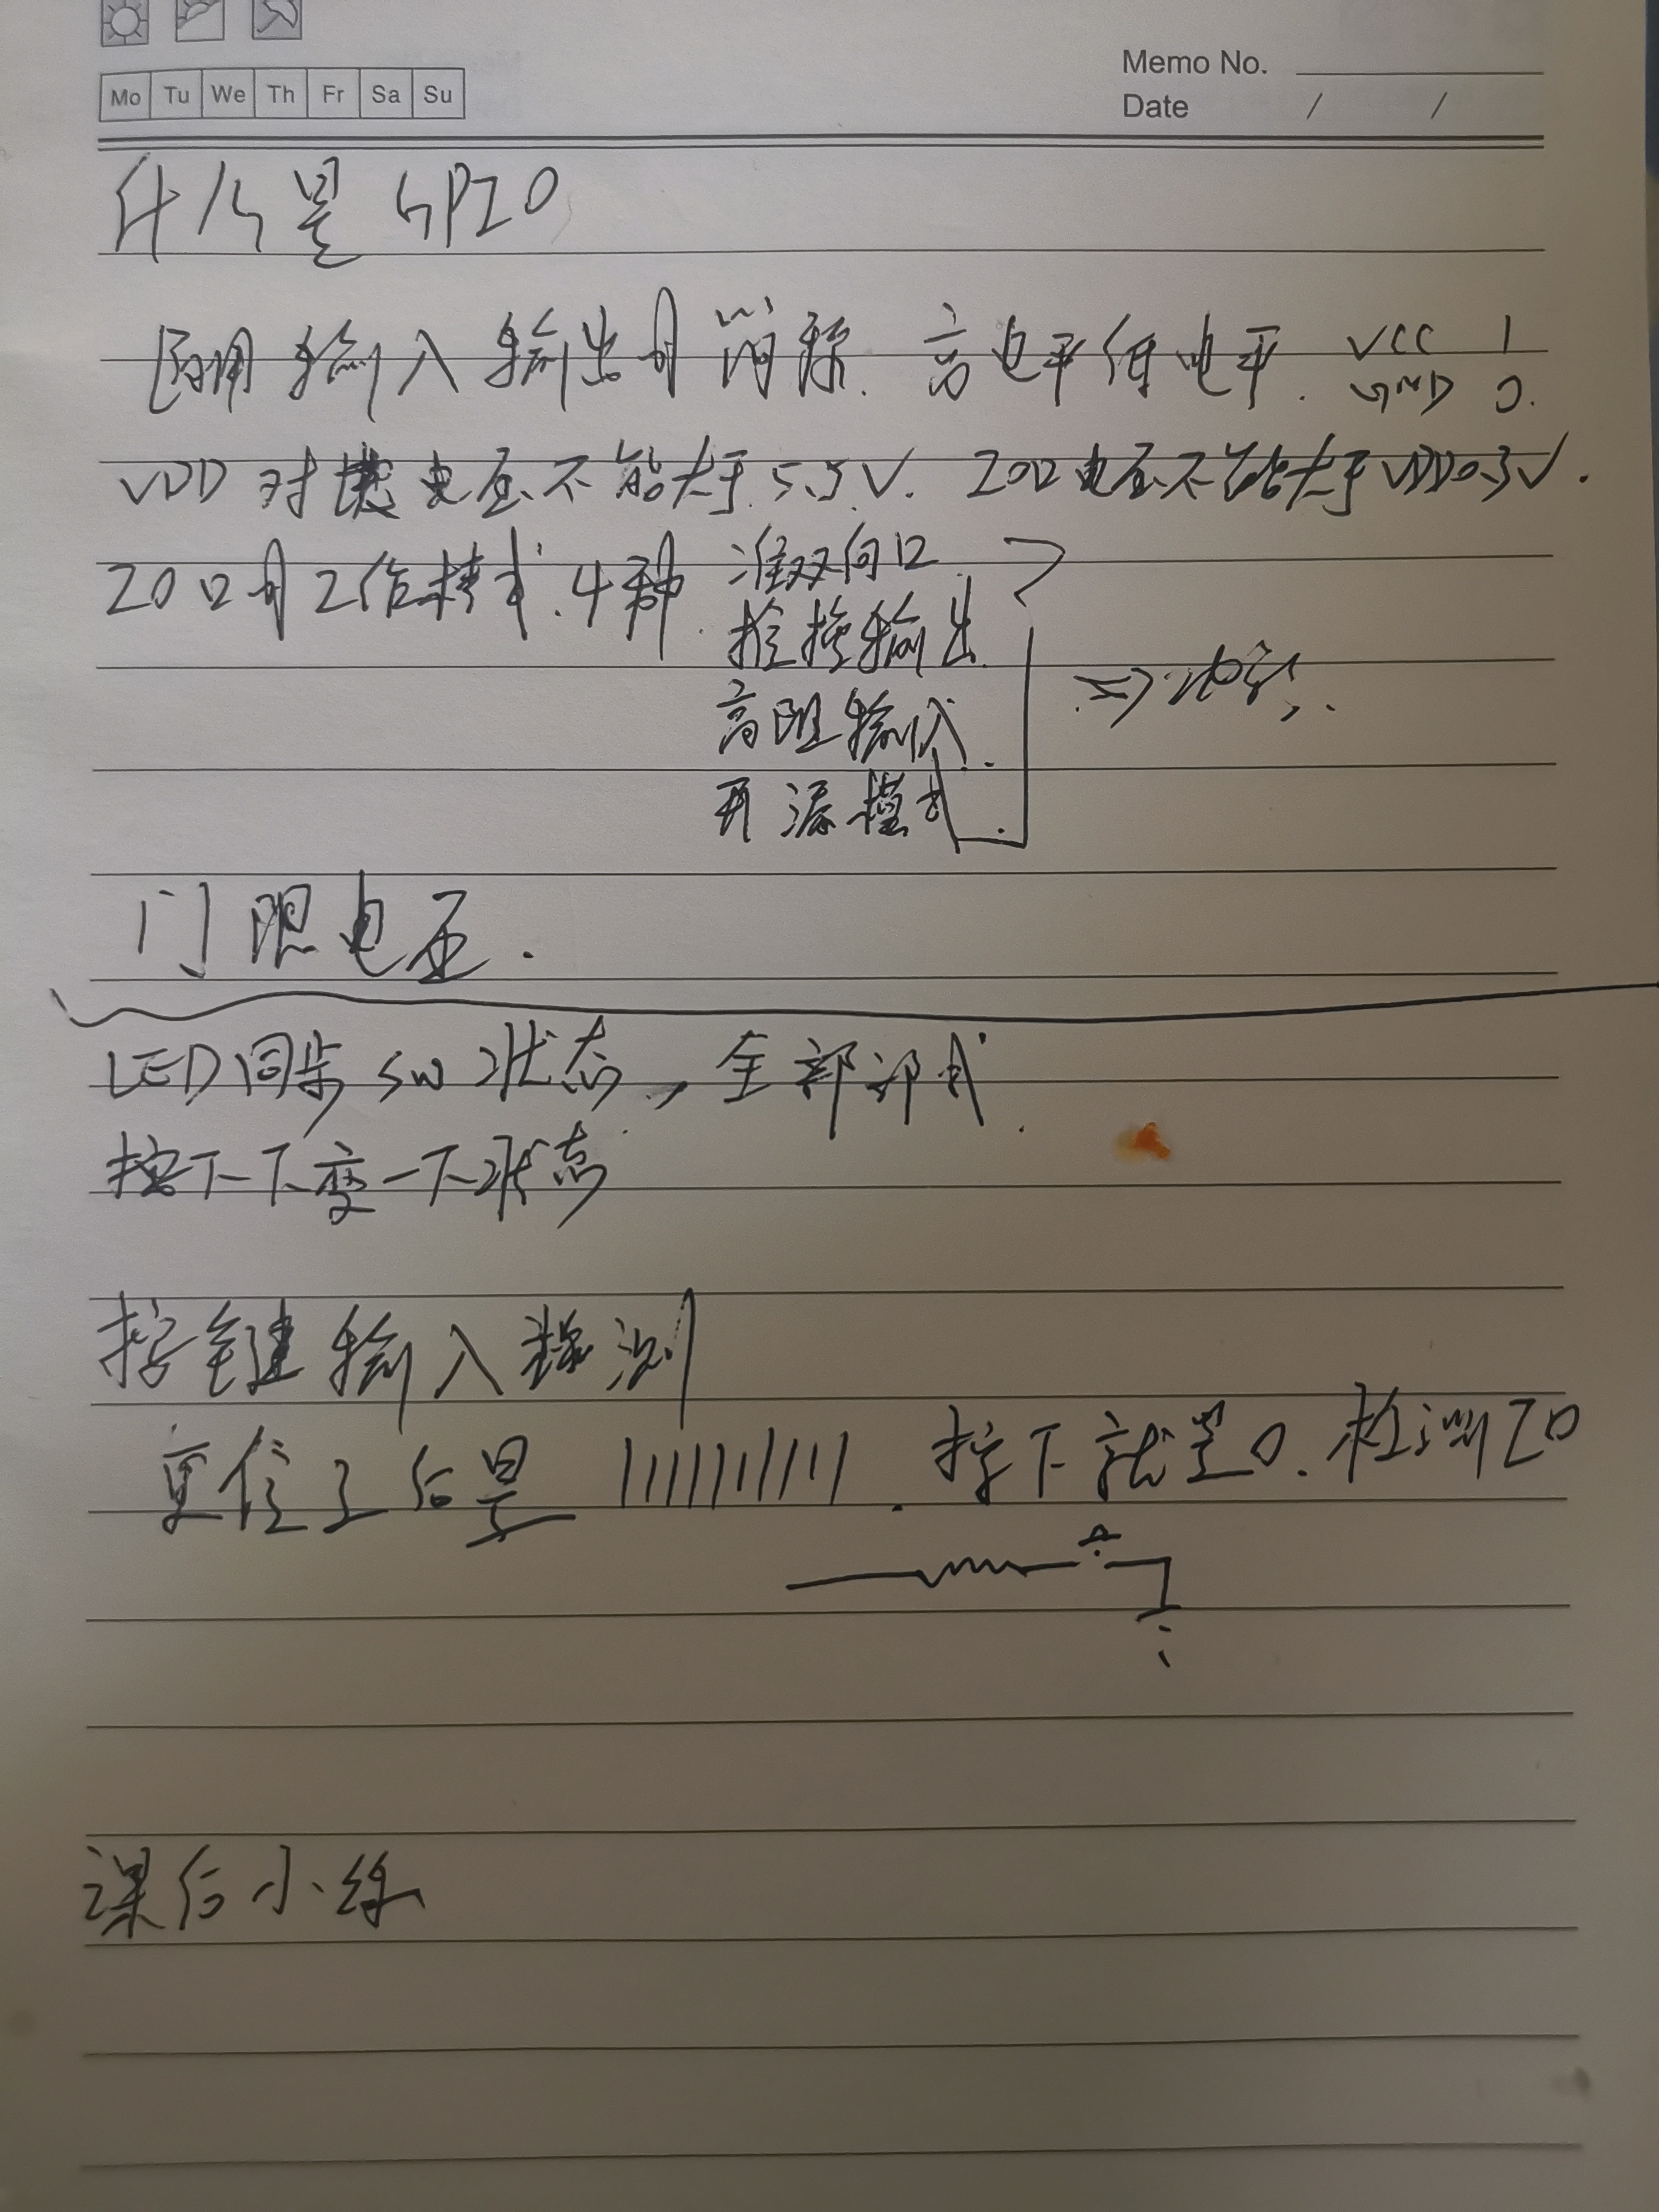 Mo Tu We Th Fr Sa Su
Memo No.
Date / /
什么是 GPIO
通用输入输出的简称. 高电平低电平. VCC 1
GND 0.
VDD 对地电压不能大于 5.5V. IO口电压不能大于VDD0.3V.
IO口的工作模式.4种. 准双向口
推挽输出
高阻输入
开漏模式
门限电压.
LED同步 SW 状态, 全部
按下下变一下状态
按键输入检测
复位了后是 1111111111. 按下就是0. 检测IO
课后小练